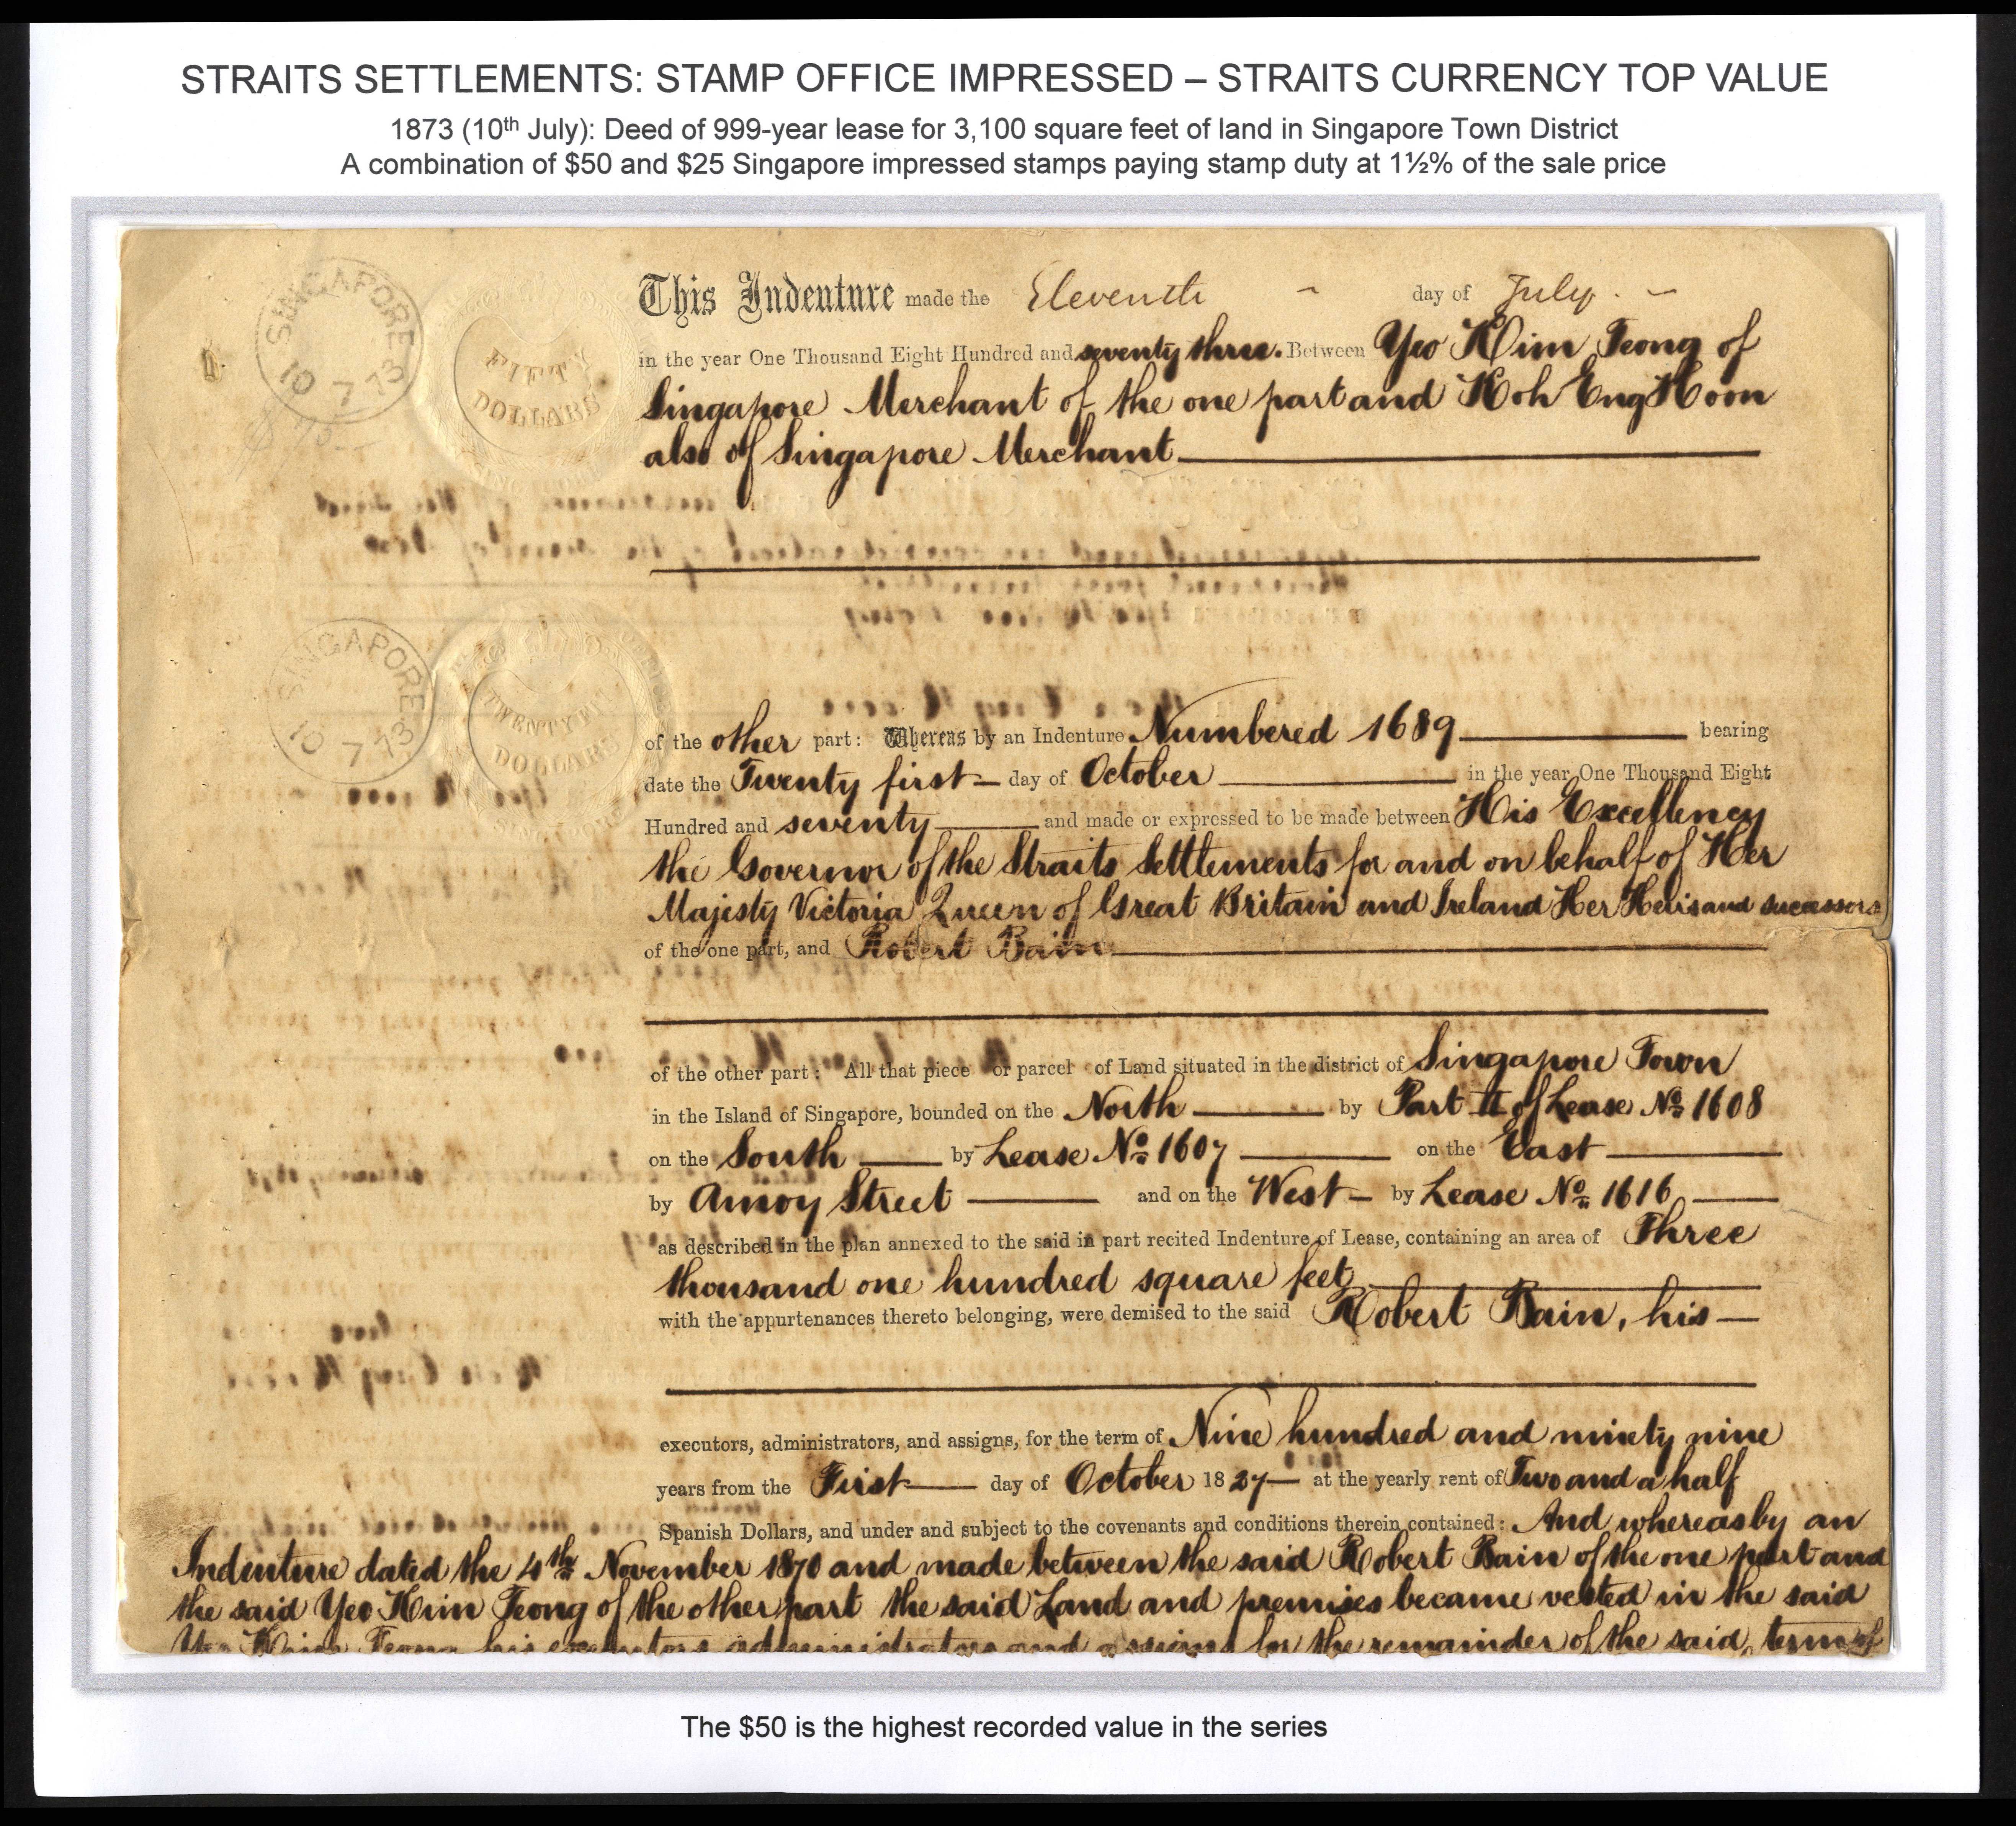 STRAITS SETTLEMENTS: STAMP OFFICE IMPRESSED – STRAITS CURRENCY TOP VALUE
1873 (10th July): Deed of 999-year lease for 3,100 square feet of land in Singapore Town District
A combination of $50 and $25 Singapore impressed stamps paying stamp duty at 1½% of the sale price
SINGAPORE
10 7 73
FIFTY
DOLLARS
This Indenture made the Eleventh day of July.
in the year One Thousand Eight Hundred and seventy three. Between Yeo Kim Teong of
Singapore Merchant of the one part and Koh Eng Hoon
also of Singapore Merchant
SINGAPORE
10 7 73
TWENTY FIVE
DOLLARS
SINGAPORE
of the other part: Whereas by an Indenture Numbered 1689 bearing
date the Twenty first day of October in the year One Thousand Eight
Hundred and seventy and made or expressed to be made between His Excellency
the Governor of the Straits Settlements for and on behalf of Her
Majesty Victoria Queen of Great Britain and Ireland Her Heirs and successors
of the one part, and Robert Bain
of the other part: All that piece or parcel of Land situated in the district of Singapore Town
in the Island of Singapore, bounded on the North by Part II of Lease No 1608
on the South by Lease No 1607 on the East
by Amoy Street and on the West by Lease No 1616
as described in the plan annexed to the said in part recited Indenture of Lease, containing an area of Three
thousand one hundred square feet
with the appurtenances thereto belonging, were demised to the said Robert Bain, his
executors, administrators, and assigns, for the term of Nine hundred and ninety nine
years from the First day of October 1827 at the yearly rent of Two and a half
Spanish Dollars, and under and subject to the covenants and conditions therein contained: And whereas by an
Indenture dated the 4th November 1870 and made between the said Robert Bain of the one part and
the said Yeo Kim Teong of the other part the said Land and premises became vested in the said
Yeo Kim Teong his executors administrators and assigns for the remainder of the said term of
The $50 is the highest recorded value in the series